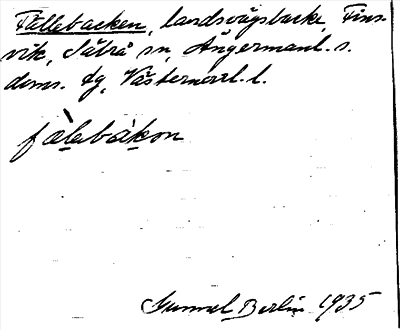 Fällebacken, landsvägsbacke, Fins-
vik, Säbrå sn, Ångermanl. s.
doms. tg, Västernorrl. l.
fàlebàkon
Gunnel Berlin 1935